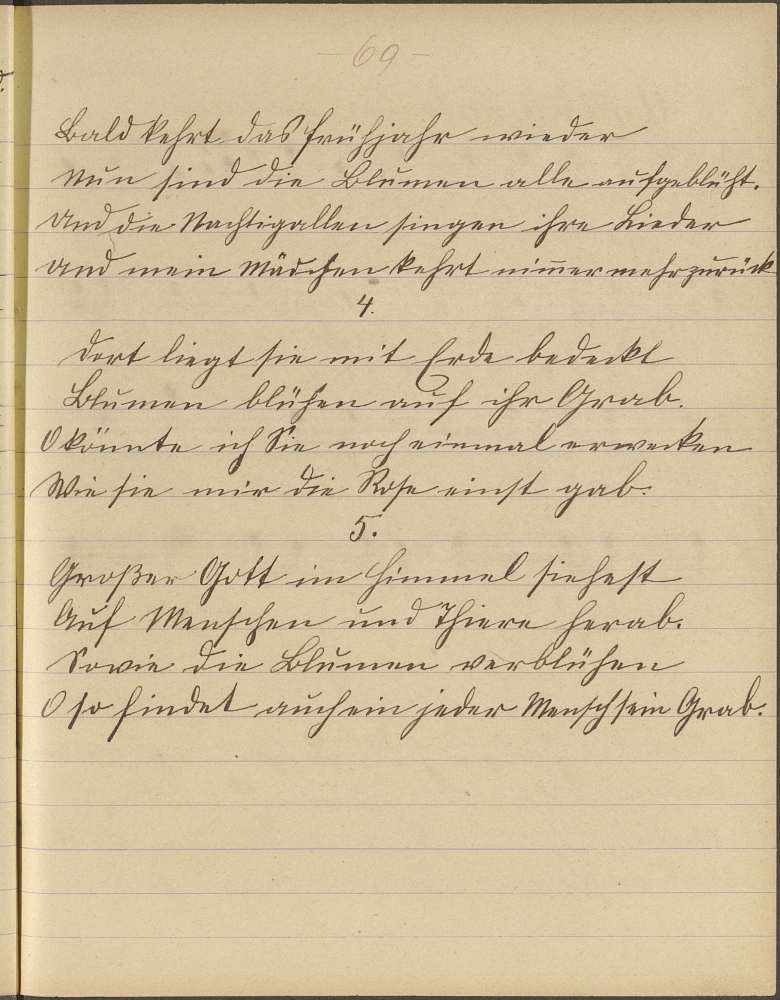 - 69 -
Bald kehrt das Frühjahr wieder
Nun sind die Blumen alle aufgeblüht.
Und die Nachtigallen singen ihre Lieder
Und mein Mädchen kehrt nim̅er mehr zurück
4.
Dort liegt sie mit Erde bedeckt
Blumen blühen auf ihr Grab.
O könnte ich Sie noch einmal erwecken
Wie sie mir die Rose einst gab.
5.
Großer Gott im Himmel siehest
Auf Menschen und Thiere herab.
Sowie die Blumen verblühen
O so findet auch ein jeder Mensch sein Grab.